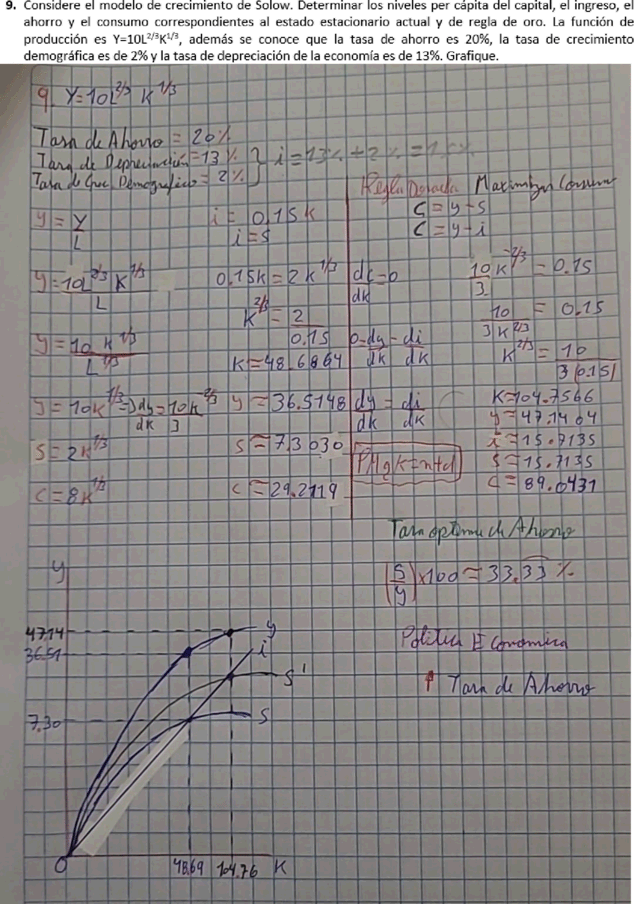 9. Considere el modelo de crecimiento de Solow. Determinar los niveles per cápita del capital, el ingreso, el
ahorro y el consumo correspondientes al estado estacionario actual y de regla de oro. La función de
producción es Y=10L^2/3K^1/3, además se conoce que la tasa de ahorro es 20%, la tasa de crecimiento
demográfica es de 2% y la tasa de depreciación de la economía es de 13%. Grafique.
9. Y=10L^2/3 K^1/3
Tasa de Ahorro = 20%
Tasa de Depreciación = 13%
Tasa de Crec. Demografico = 2%
} i = 13% + 2% = 15%
y = Y/L
y = 10L^2/3 K^1/3 / L
y = 10 K^1/3 / L^1/3
y = 10K^1/3 => dy/dk = 10k^-2/3 / 3
S = 2K^1/3
C = 8K^1/3
i = 0.15K
i = s
0.15k = 2k^1/3
K^2/3 = 2/0.15
K = 48.6864
y ≈ 36.5148
s ≈ 7.3030
c ≈ 29.2119
Regla Dorada Maximizar Consumo
C = y - s
C = y - i
dc/dk = 0
0 = dy/dk - di/dk
dy/dk = di/dk
PMgK = n+d
10/3 K^-2/3 = 0.15
10/3K^2/3 = 0.15
K^2/3 = 10/3(0.15)
K≈104.7566
y ≈ 47.1404
i ≈ 15.7135
s ≈ 15.7135
c ≈ 89.0431
Tasa optima de Ahorro
(s/y) x100 ≈ 33.33 %
Politica Economica
↑ Tasa de Ahorro
y
47.14
36.51
7.30
y
i
s'
s
0
48.69
104.76
K